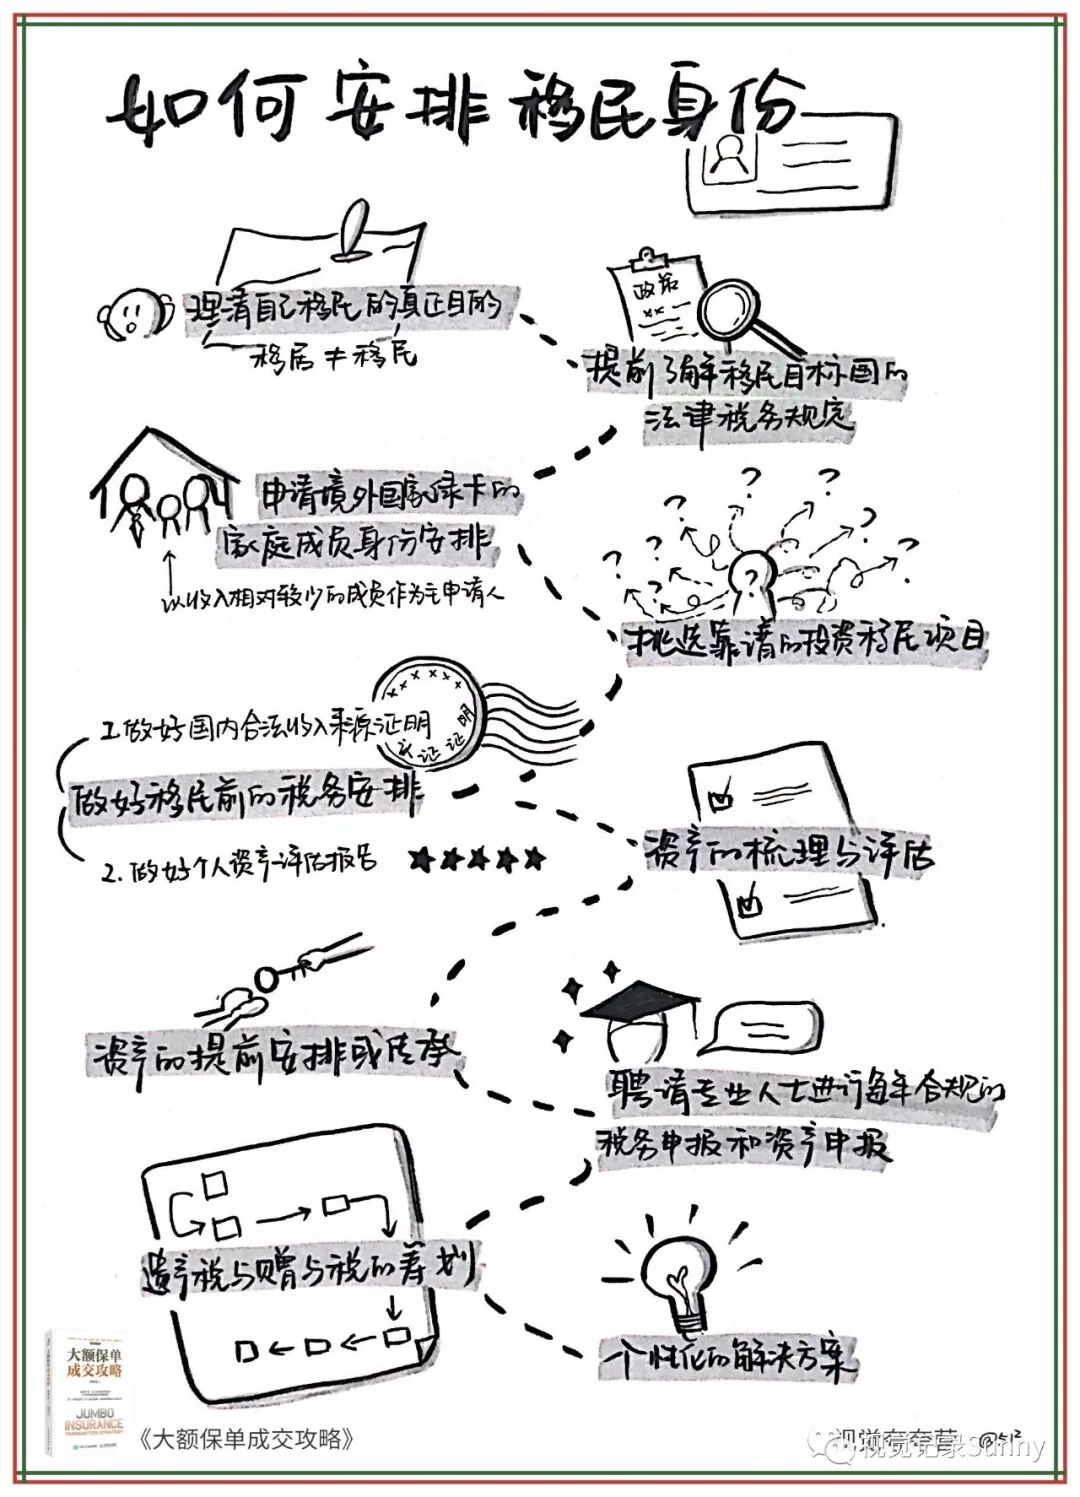 如何安排移民身份
理清自己移民的真正目的
移居≠移民
政策
××~
提前了解移民目标国的
法律税务规定
申请境外国家绿卡的
家庭成员身份安排
以收入相对较少的成员作为主申请人
? ? ? ? ? ? ? ?
挑选靠谱的投资移民项目
1.做好国内合法收入来源证明
××××××
证证明
做好移民前的税务安排
2.做好个人资产评估报告 ★★★★★
资产的梳理与评估
资产的提前安排或传承
聘请专业人士进行每年合规的
税务申报和资产申报
遗产税与赠与税的筹划
个性化的解决方案
大额保单
成交攻略
JUMBO
INSURANCE
TRANSACTION STRATEGY
《大额保单成交攻略》
视觉夸夸营
视觉记录Sunny